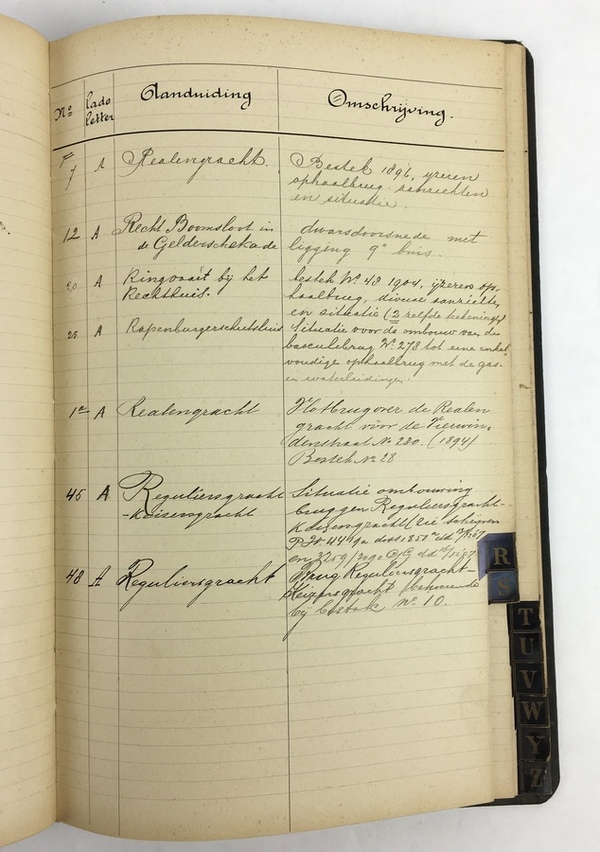 No Lade letter Aanduiding Omschrijving.
7 A Realengracht. Bestek 1896, ijzeren
ophaalbrug aanzichten
en situatie.
12 A Recht Boomsloot in dwarsdoorsnede met
de Gelderschekade ligging 9" buis.
20 A Ringvaart bij het bestek No 48 1904, ijzeren op-
Rechthuis. haalbrug, diverse aanzichten
en situatie (2 zelfde tekeningen)
25 A Rapenburgerschutsluis Situatie voor de ombouw van de
basculebrug No 278 tot eene enkel
voudige ophaalbrug met de gas-
en waterleidingen.
1a A Realengracht Vlotbrug over de Realen
gracht vóór de Vierwin-
denstraat No 280. (1894)
Bestek No 28
45 A Reguliersgracht Situatie ombouwing
-Keizersgracht bruggen Reguliersgracht-
Keizersgracht (zie schrijven
48 A Reguliersgracht Brug Reguliersgracht-
Keizersgracht behoorende
bij bestek No 10.
R
S
T
U
V
W
Y
Z